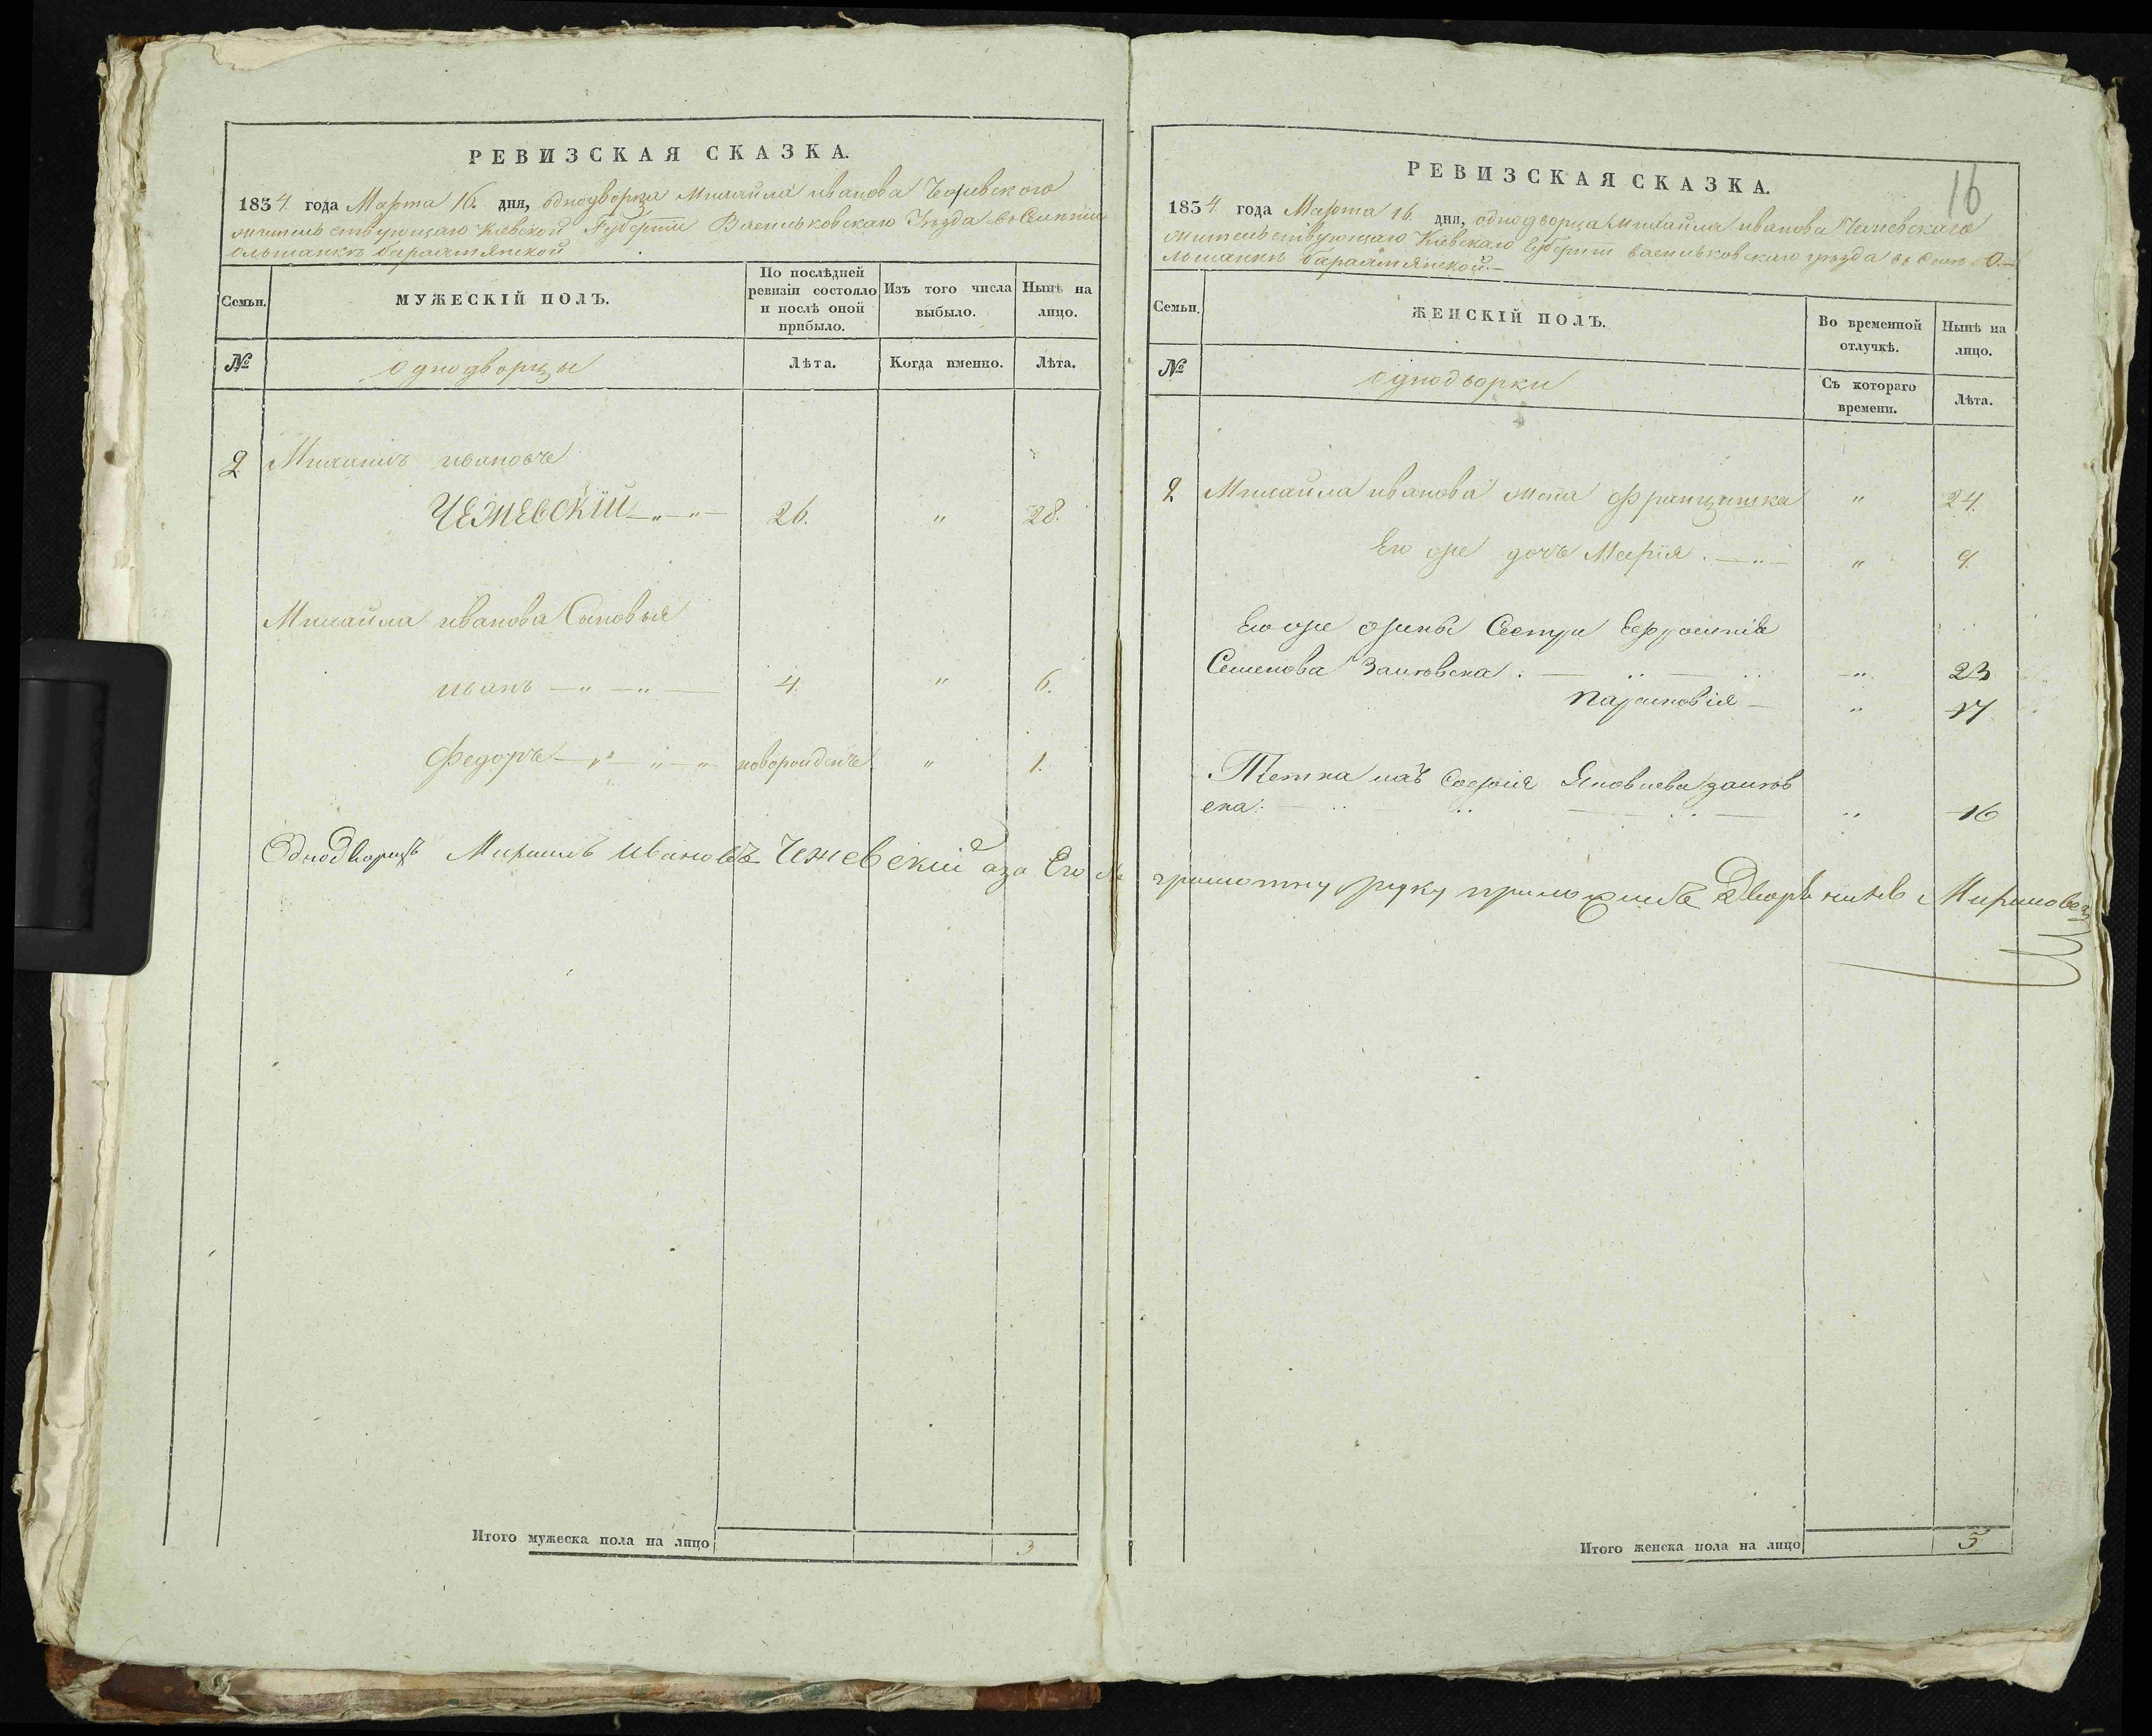 РЕВИЗСКАЯ СКАЗКА.
1834 года Марта 16. дня, однодворца Михайла иванова Чежевского
жительствующаго Киевской Губернии Васильковскаго Уезда в Селении
ольшанке барахтянской
Семьи.
МУЖЕСКІЙ ПОЛЪ.
По послѣдней ревизіи состояло и послѣ оной прибыло.
Изъ того числа выбыло.
Нынѣ на лицо.
№
однодворцы
Лѣта.
Когда именно.
Лѣта.
2 Михаилъ ивановъ
ЧЕЖЕВСКІЙ 26. " 28.
Михайла иванова Сыновья
иванъ 4. " 6.
Федоръ новорожденъ " 1.
Итого мужеска пола на лицо 3
16
РЕВИЗСКАЯ СКАЗКА.
1834 года Марта 16 дня, однодворца Михайла иванова Чежевскаго
жительствующаго Киевскаго Губернии васильковскаго уезда в Селе О-
льшанке барахтянской.
Семьи.
ЖЕНСКІЙ ПОЛЪ.
Во временной отлучкѣ.
Нынѣ на лицо.
№
однодворки
Съ котораго времени.
Лѣта.
2 Михайла иванова жена Францишка " 24.
Его же дочь Марія "
Его же жены Сестра
Семенова " 23
Парасковія " 17
Тетка ихъ Софія Яковлева
ска " 16
Однодворецъ Михаилъ Ивановъ Чежевский а за Его не грамотну руку приложилъ Дворянинъ
Итого женска пола на лицо 5